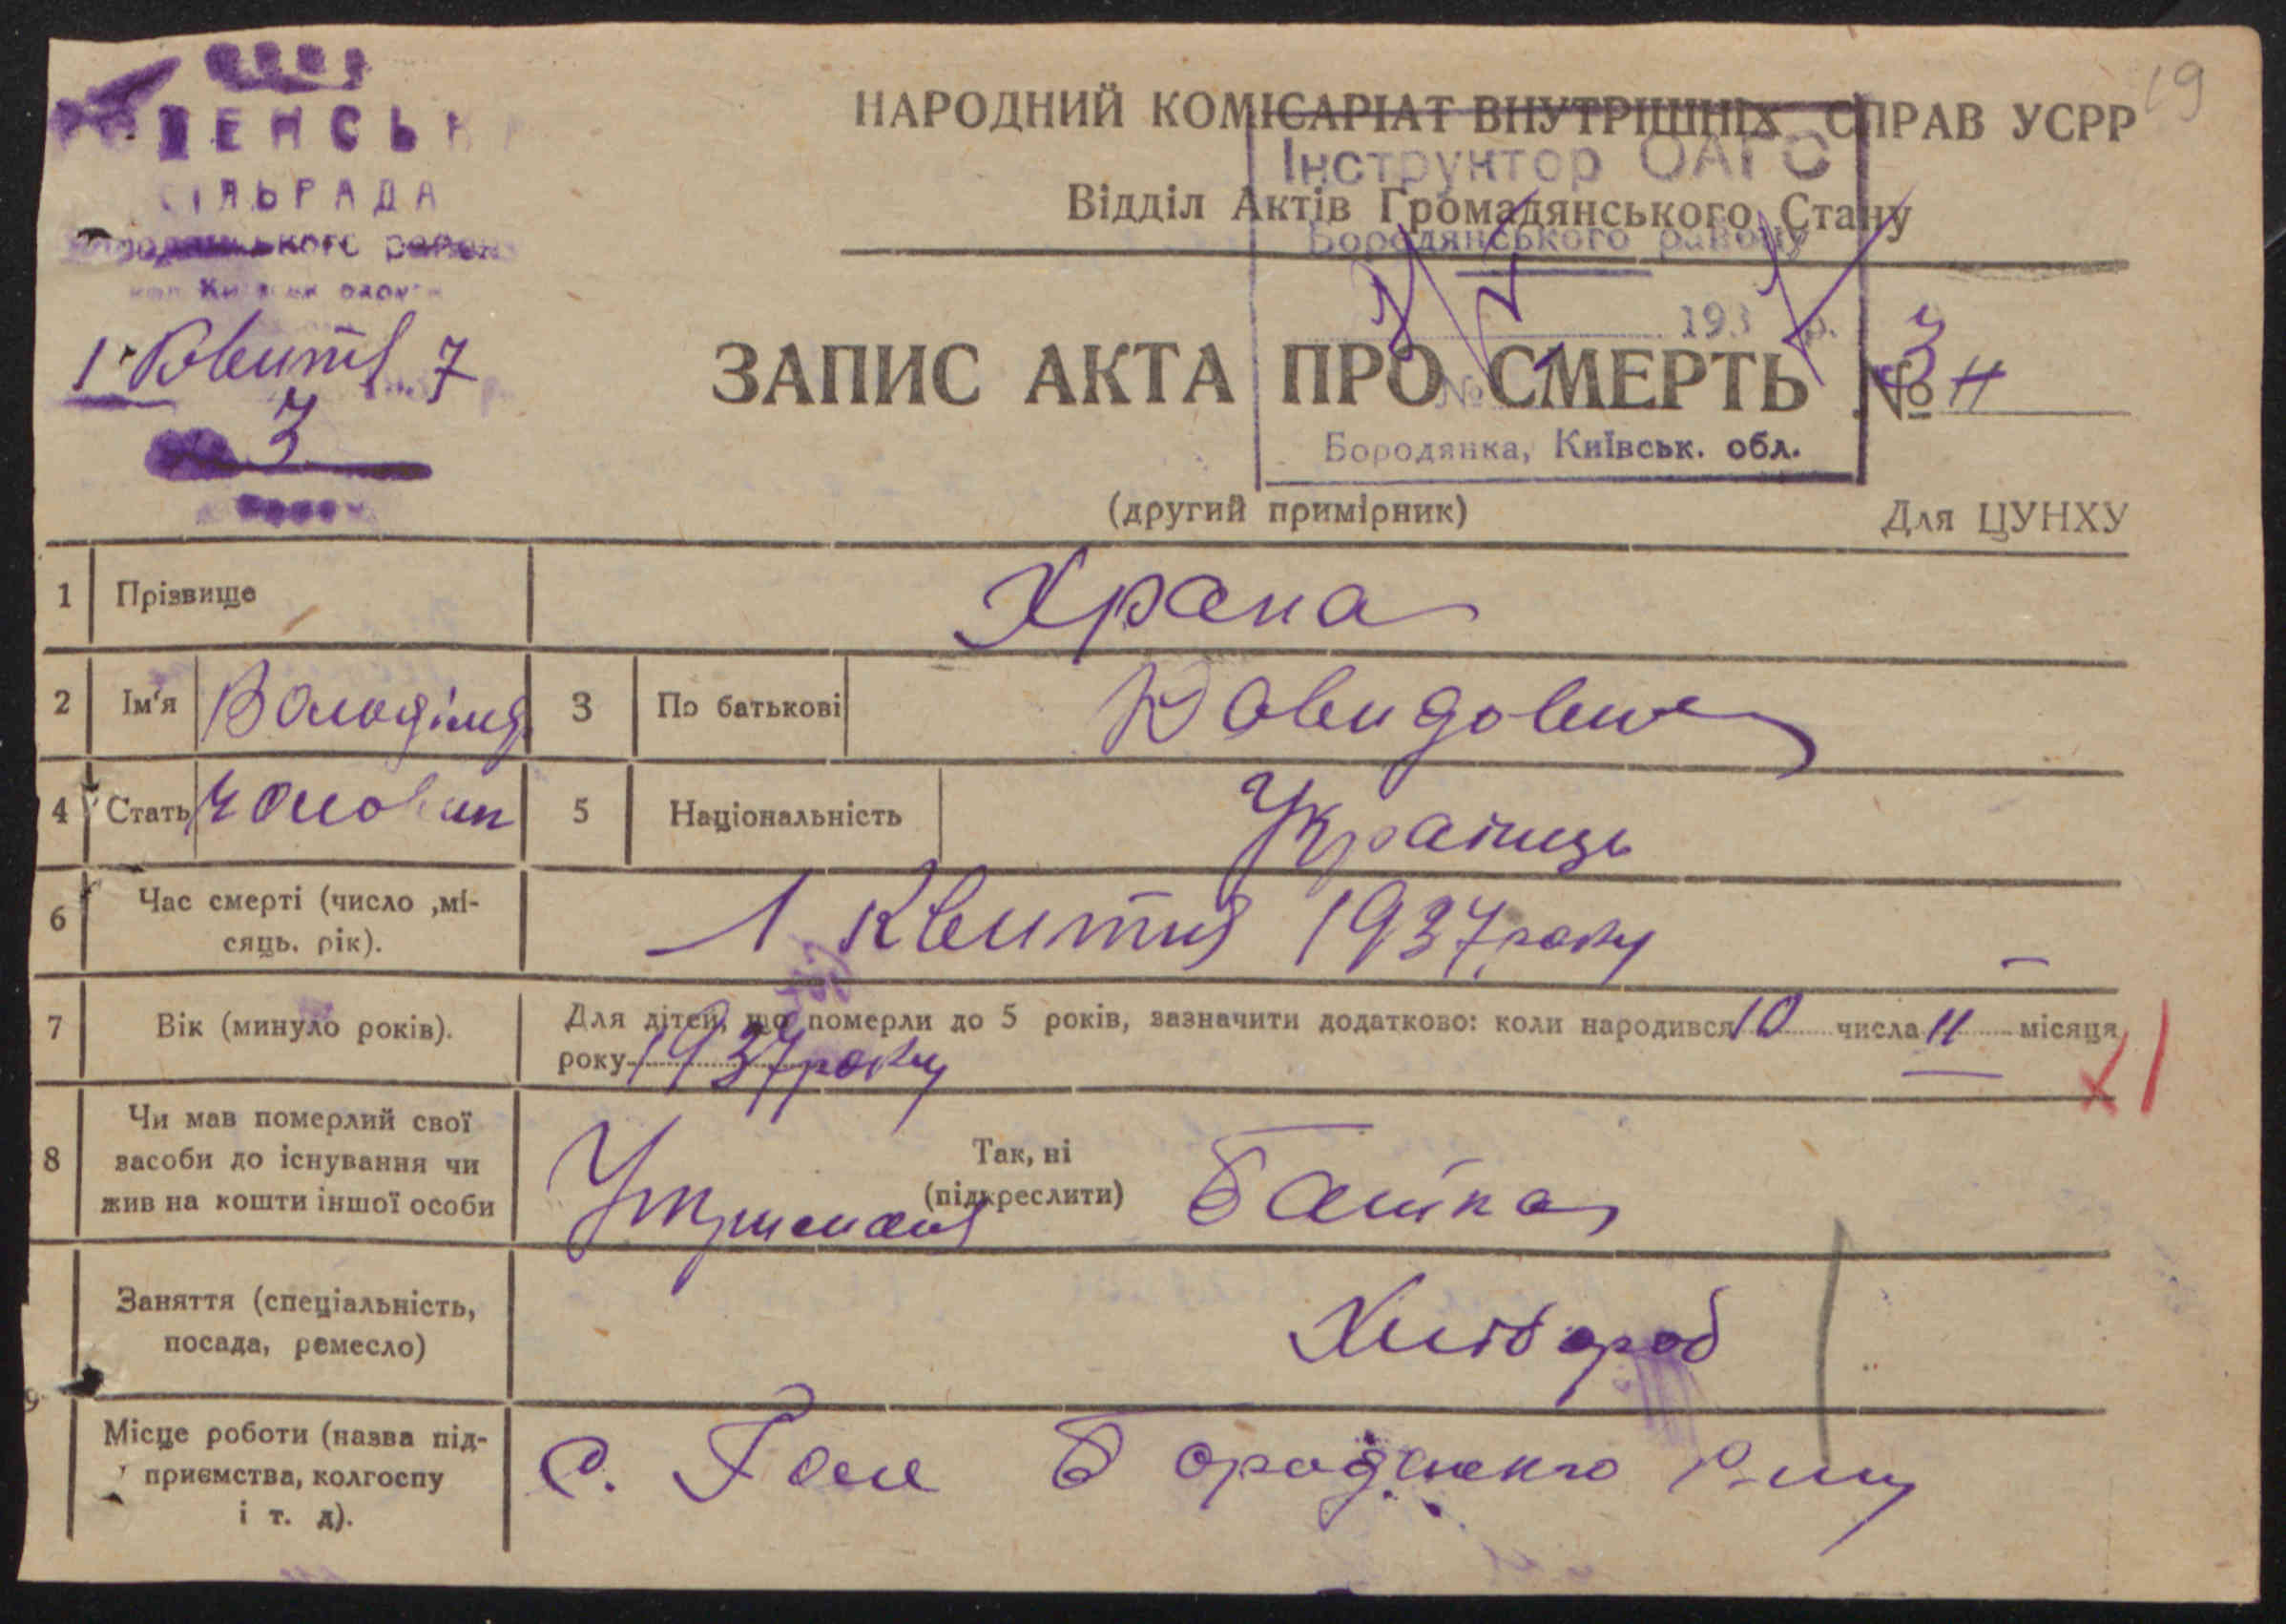 19
НАРОДНИЙ КОМІСАРІАТ ВНУТРІШНІХ СПРАВ УСРР
Відділ Актів Громадянського Стану
СІЛЬРАДА
1 Квітня 7
3
Інструктор ОАГС
Бородянського району
193 р.
№
Бородянка, Київськ. обл.
ЗАПИС АКТА ПРО СМЕРТЬ № 3
(другий примірник)
Для ЦУНХУ
1 Прізвище Храпа
2 Ім'я Володімер 3 По батькові Давидович
4 Стать Чоловік 5 Національність Українець
6 Час смерті (число ,мі-
сяць. рік). 1 Квитня 1937 року
7 Вік (минуло років). Для дітей, що померли до 5 років, зазначити додатково: коли народився 10 числа 11 місяця
року 1937 року
8 Чи мав померлий свої
засоби до існування чи
жив на кошти іншої особи
Так, ні
(підкреслити)
Утриманя Батька
9 Заняття (спеціальність,
посада, ремесло) Хлібороб
Місце роботи (назва під-
приємства, колгоспу
і т. д).
с. Бородянкого р-ну